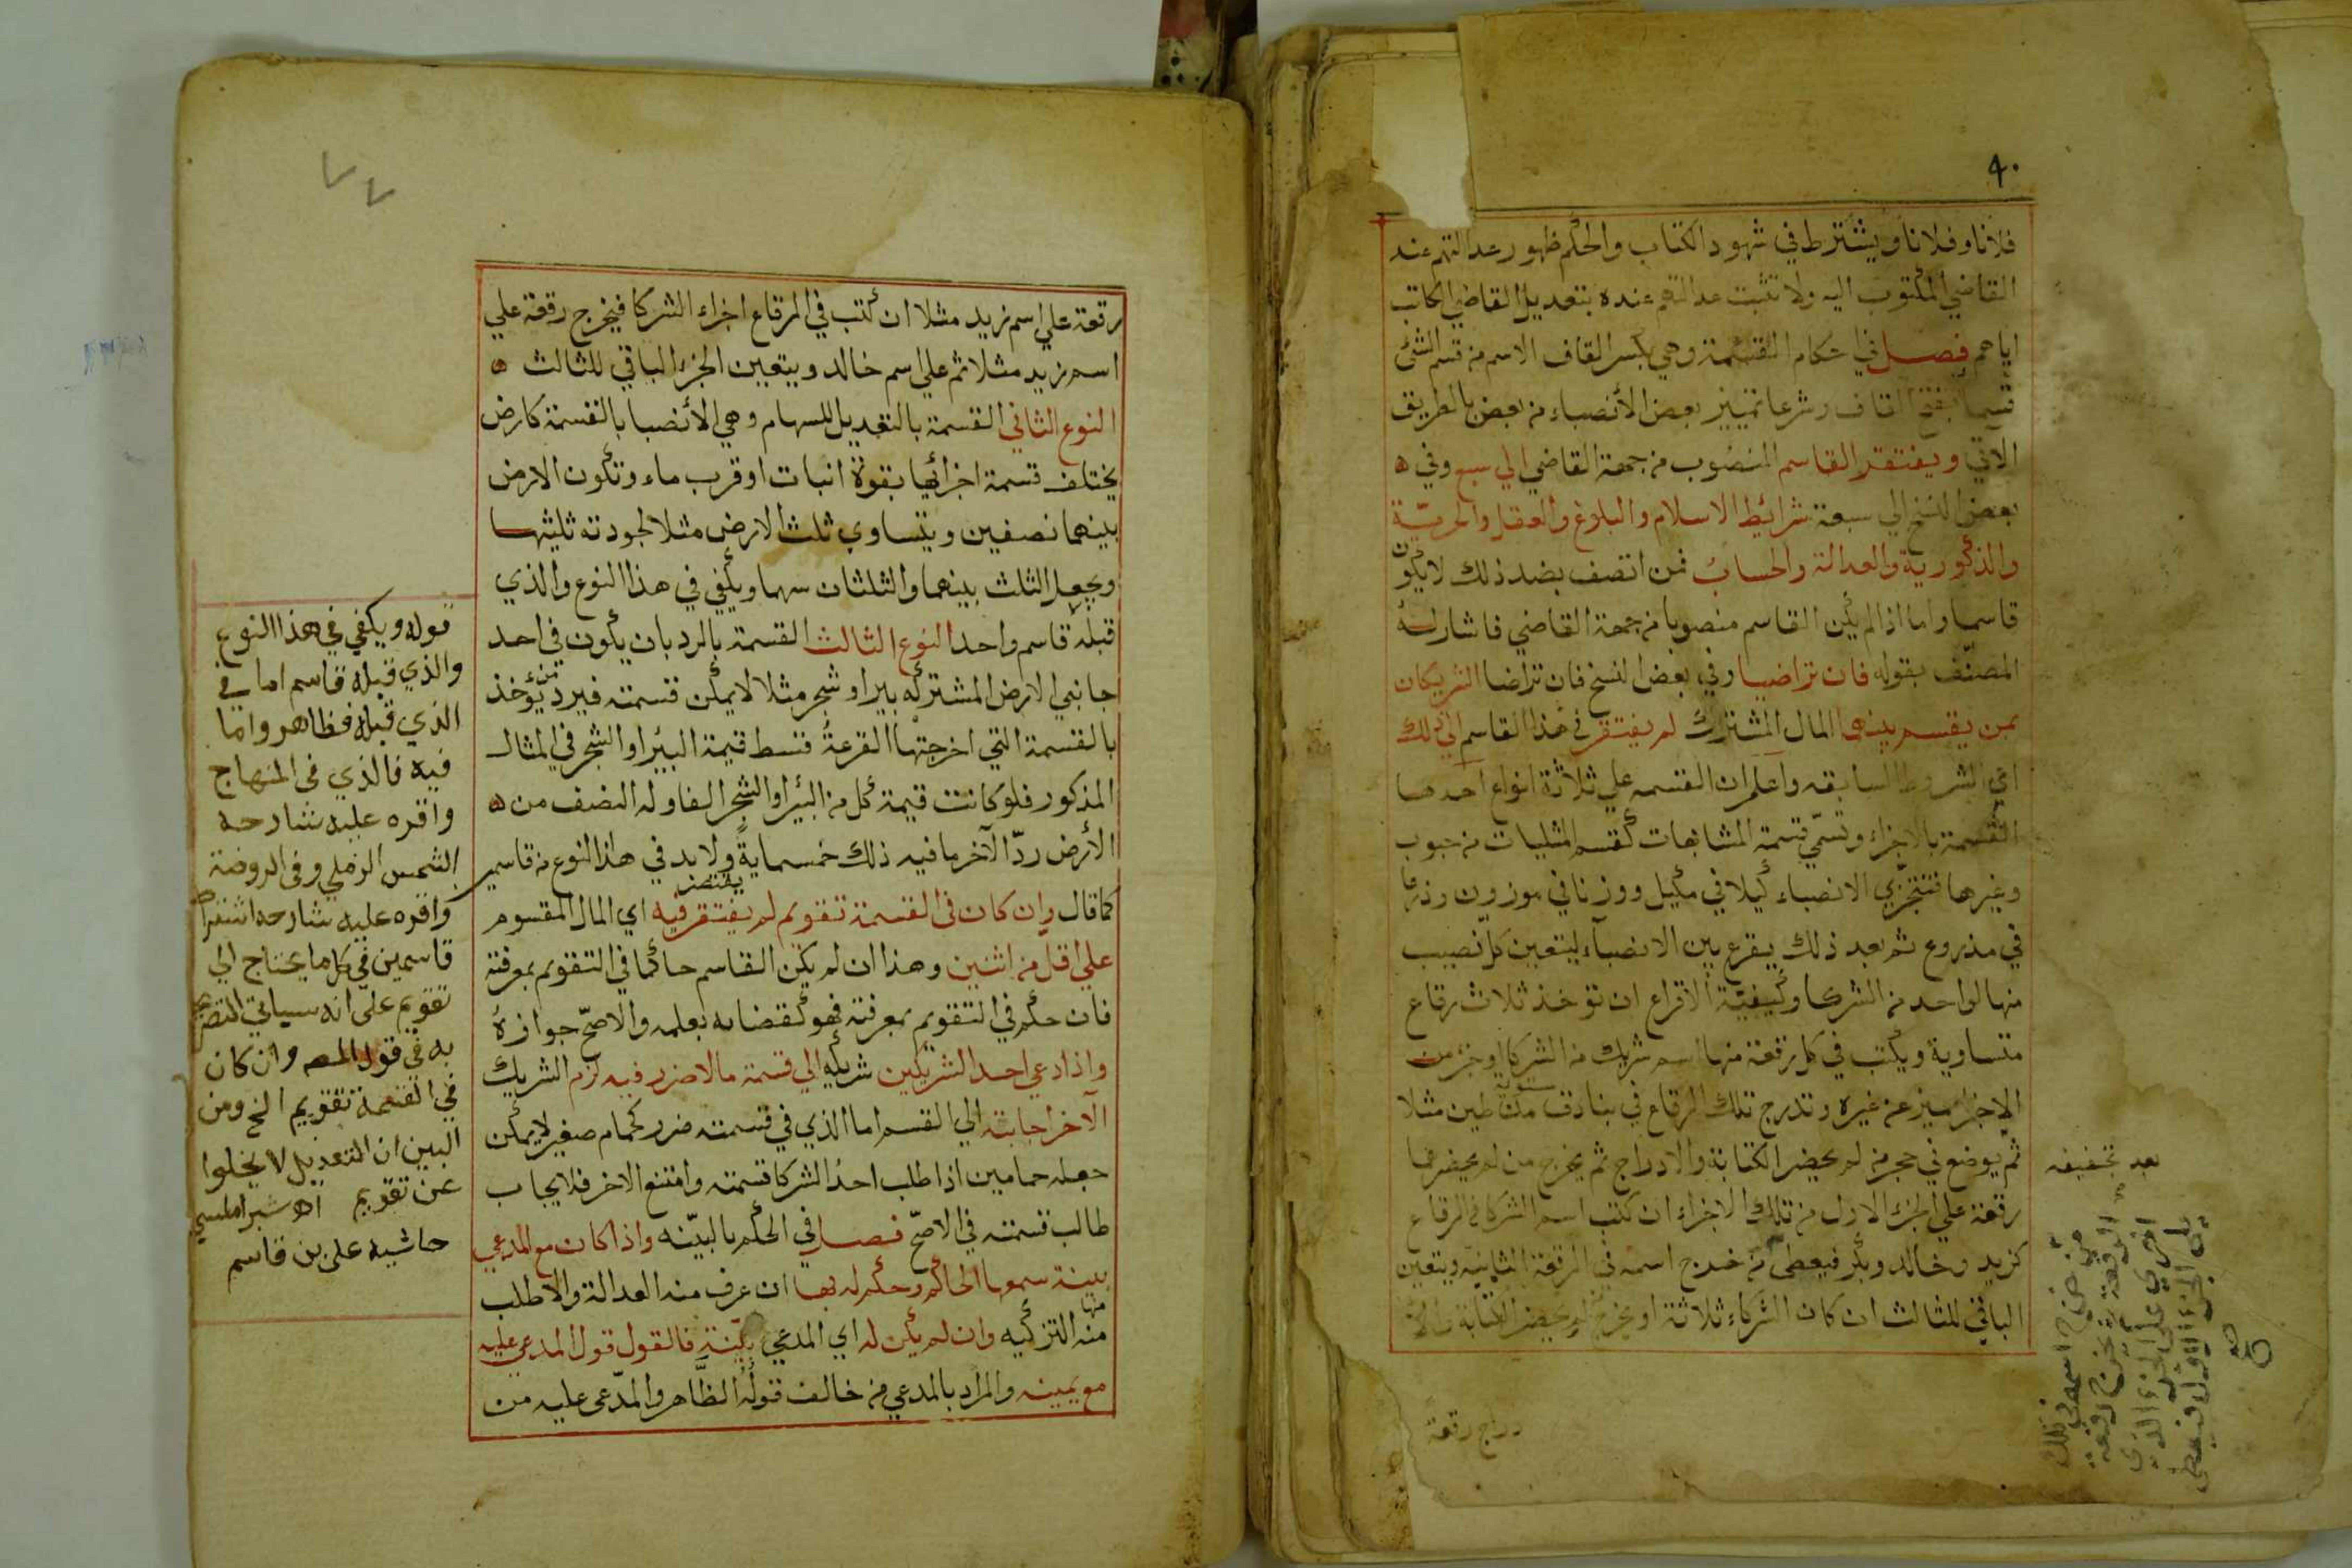 ٩٠
فلانا وفلانا ويشترط في شهود الكتاب والحكم ظهور عدالتهم عند
القاضي المكتوب اليه ولا تثبت عدالتهم عنده بتعديل القاضي الكاتب
اياهم فصل في احكام القسمة وهي بكسر القاف الاسم من قسم الشئ
قسما بفتح القاف وشرعا تمييز بعض الأنصباء من بعض بالطريق
الآتي ويفتقر القاسم المنصوب من جهة القاضي الي سبع وفي
بعض النسخ الي سبعة شرائط الاسلام والبلوغ والعقل والحرية
والذكورية والعدالة والحساب فمن اتصف بضد ذلك لا يكون
قاسما واما اذا لم يكن القاسم منصوبا من جهة القاضي فاشار له
المصنف بقوله فان تراضيا وفي بعض النسخ فان تراضا الشريكان
بمن يقسم بينهما المال المشترك لم يفتقر في هذا القاسم الي ذلك
اي الشروط السابقه واعلم ان القسمه علي ثلاثة انواع احدها
القسمة بالاجزاء وتسمي قسمة المتشابهات كقسم المثليات من حبوب
وغيرها فتتجزي الانصباء كيلا في مكيل ووزنا في موزون وذرعا
في مذروع ثم بعد ذلك يقرع بين الانصباء ليتعين كل نصيب
منها لواحد من الشركا وكيفية الاقراع ان تؤخذ ثلاث رقاع
متساوية ويكتب في كل رقعة منها اسم شريك من الشركا او جزء من
الاجزا مميز عن غيره وتدرج تلك الرقاع في بنادق مستوية من طين مثلا
ثم يوضع في حجر من لم يحضر الكتابة والادراج ثم يخرج من لم يحضرهما
رقعة علي الجزء الاول من تلك الاجزاء ان كتب اسم الشركا في الرقاع
كزيد وخالد وبكر فيعطى من خرج اسمه في الرقعة الثانية ويتعين
الباقي للثالث ان كان الشركاء ثلاثة او يخرج من لم يحضر الكتابة والا
دراج رقعة
بعد تجفيفه
من خرج اسمه في تلك
الرقعة ثم يخرج رقعة
اخري على الجزء الذي
يلي الجزء الاول فيعطى
صح
٧٧
رقعة علي اسم زيد مثلا ان كتب في الرقاع اجزاء الشركا فيخرج رقعة علي
اسم زيد مثلا ثم علي اسم خالد ويتعين الجزء الباقي للثالث
النوع الثاني القسمة بالتعديل للسهام وهي الأنصبا بالقسمة كارض
يختلف قسمة اجزائها بقوة انبات او قرب ماء وتكون الارض
بينهما نصفين ويتساوي ثلث الارض مثلا لجودته ثليثها
ويجعل الثلث بينهما والثلثان سهما ويكفي في هذا النوع والذي
قبله قاسم واحد النوع الثالث القسمة بالرد بان يكون في احد
جانبي الارض المشتركه بير او شجر مثلا لا يمكن قسمته فيرد من يؤخذ
بالقسمة التي اخرجتها القرعة قسط قيمة البئر او الشجر في المثال
المذكور فلو كانت قيمة كل من البئر او الشجر الفا وله النصف من
الأرض ردّ الآخر ما فيه ذلك خمسماية ولا بد في هذا النوع من قاسمين
كما قال وان كان في القسمة تقويم لم يفتقر يقتصر فيه اي المال المقسوم
علي اقل من اثنين وهذا ان لم يكن القاسم حاكما في التقويم بمعرفته
فان حكم في التقويم بمعرفته فهو كقضايه بعلمه والاصحّ جوازه
واذا دعي احد الشريكين شريكه الي قسمة ما لا ضرر فيه لزم الشريك
الآخر اجابته الي القسم اما الذي في قسمته ضرر كحمام صغير لا يمكن
جعله حمامين اذا طلب احد الشركا قسمته وامتنع الاخر فلا يجاب
طالب قسمته في الاصحّ فصل في الحكم بالبيّنه واذا كان مع المدعي
بينة سمعها الحاكم وحكم له بها ان عرف منه العدالة والا طلب
منها منه التزكيه وان لم يكن له اي المدعي بيّنة فالقول قول المدعي عليه
مع يمينه والمراد بالمدعي من خالف قوله الظاهر والمدّعى عليه من
قوله ويكفي في هذا النوع
والذي قبله قاسم اما في
الذي قبله فظاهر واما
فيه فالذي في المنهاج
واقره عليه شارحه
الشمس الرملي وفي الروضة
واقره عليه شارحه اشتراط
قاسمين في كل ما يحتاج الي
تقويم على انه سياتي التصريح
به في قول المصه وان كان
في القسمة تقويم الخ ومن
البين ان التعديل لا يخلوا
عن تقويم اه شبراملسي
حاشيه على بن قاسم